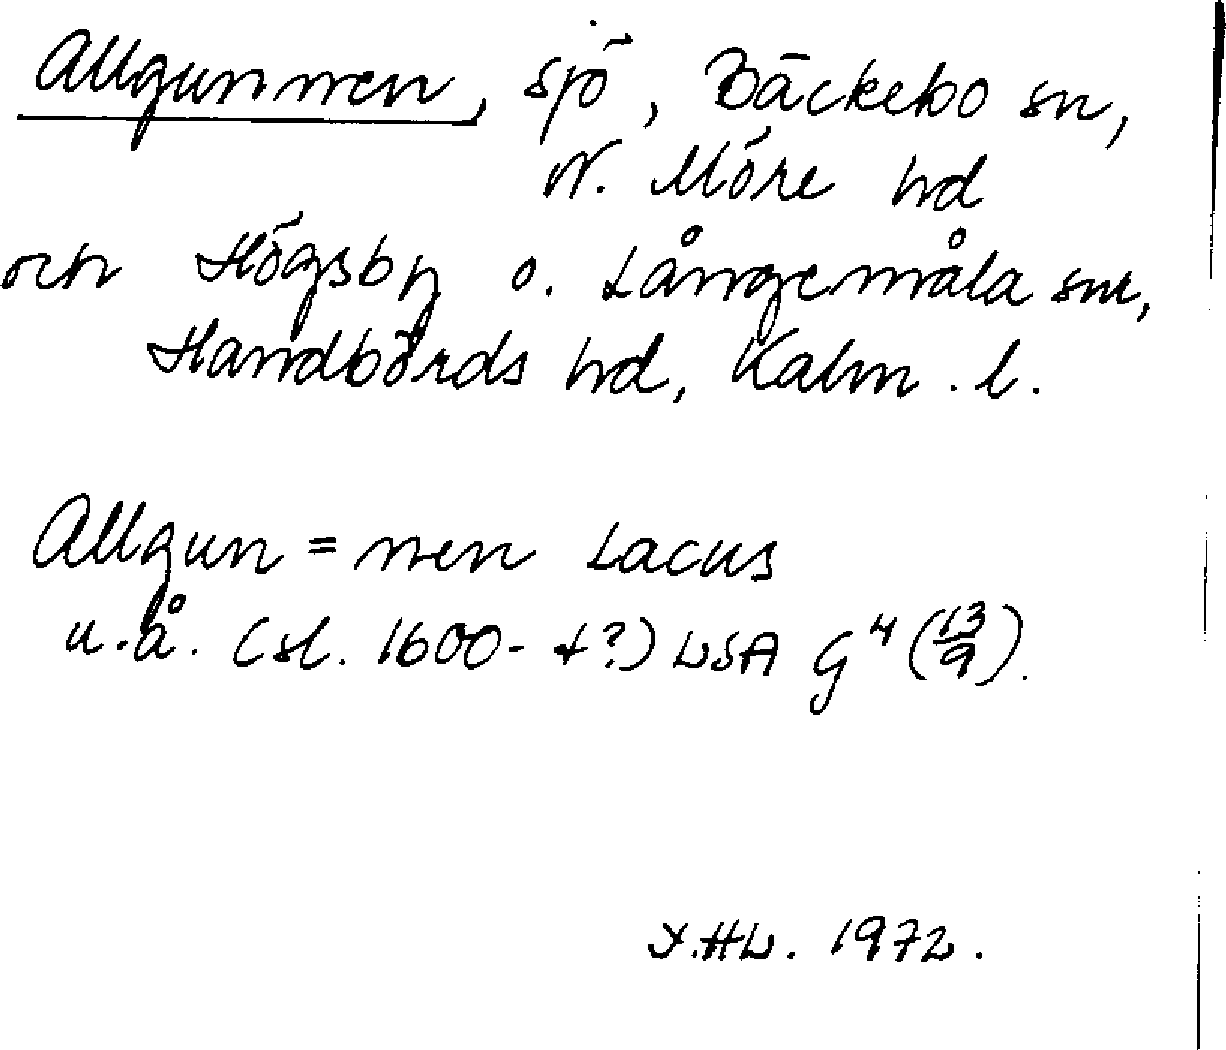 Allgunnen, sjö, Bäckebo sn,
N. Möre hd
och Högsby o. Långemåla snr,
Handbörds hd, Kalm. l.
Allgun=nen Lacus
u.å. (sl. 1600-t?) LSA G⁴ (13/9).
1972.